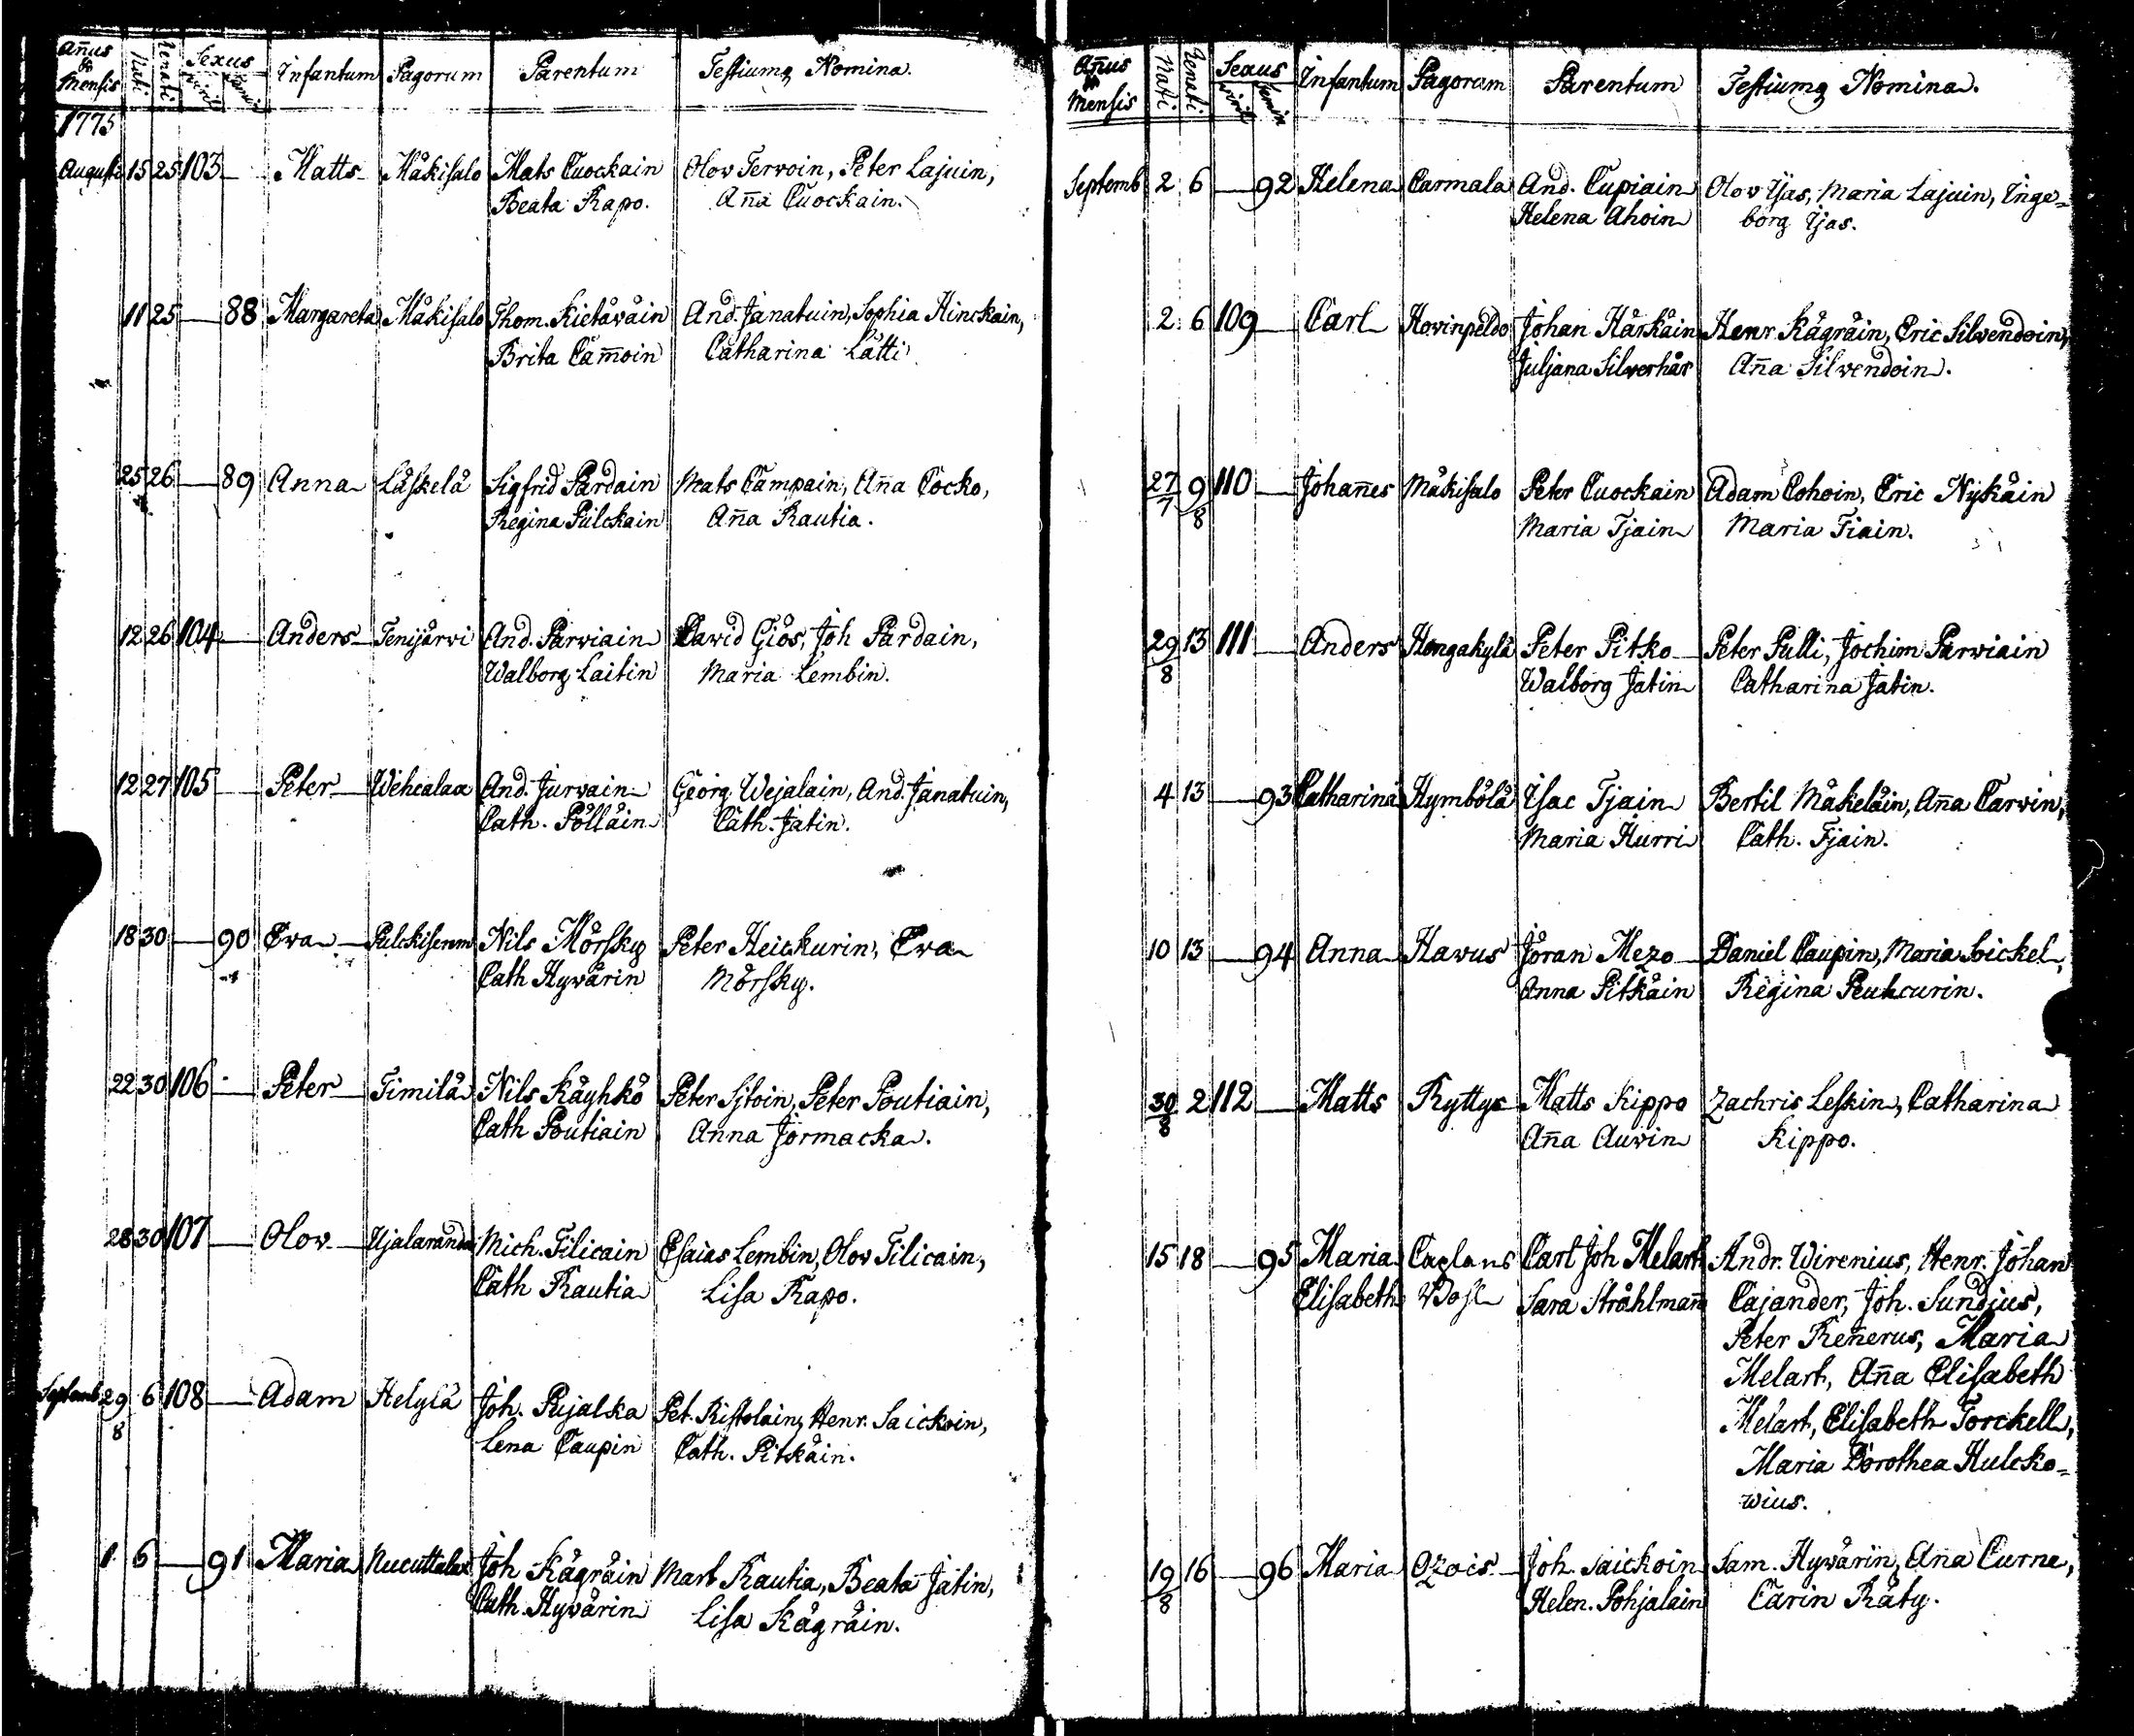 Añus & Mensis Nati Renati Sexus Infantum Pagorum Parentum Testiumq Nomina.
viril femin
1775
Augusti 15 25 103 — Matts Mäkisalo Mats Cuockain Olov Tervoin, Peter Lajuin,
Beata Rapo. Aña Cuockain.
11 25 — 88 Margareta Mäkisalo Thom. Kietäwäin And. Janatuin, Sophia Hinckain,
Brita Cam̃oin Catharina Lätti
25 26 — 89 Anna Läskelä Sigfrid Pardain Mats Campain, Aña Cocko,
Regina Pulckain Aña Rautia.
12 26 104 — Anders Tenijärvi And. Parwiain Dawid Giös, Joh Pardain,
Walborg Laitin Maria Lembin.
12 27 105 — Peter Wehcalax And. Jurvain Georg Wejalain, And. Janatuin,
Cath. Pölläin Cath. Jatin.
18 30 — 90 Eva Nils Mörsky Peter Heickurin, Eva
Cath Hywärin Mörsky.
22 30 106 — Peter Timilä Nils Käyhkö Peter Sjtoin, Peter Poutiain,
Cath Poutiain Anna Jormacka.
28 30 107 — Olov Ujalaranda Mich. Tilicain Esaias Lembin, Olov Tilicain,
Cath Rautia Lisa Rapo.
Septemb 29/8 6 108 — Adam Helylä Joh. Pujalka Pet. Ristolain, Henr. Saickoin,
Lena Caupin Cath. Pitkäin.
1 6 — 91 Maria Nucuttalax Joh Kägräin Mart Rautia, Beata Jatin,
Cath. Hywärin Lisa Kägräin.
Añus & Mensis Nati Renati Sexus Infantum Pagorum Parentum Testiumq Nomina.
viril femin
Septemb 2 6 — 92 Helena Carmala And. Cupiain Olov Ijas, Maria Lajuin, Inge=
Helena Ahoin borg Ijas.
2 6 109 — Carl Hovinpeldo Johan Härkäin Henr Kägräin, Eric Silvendoin,
Juljana Silverhär Aña Silvendoin.
27/7 9/8 110 — Johañes Mäkisalo Peter Cuockain Adam Cohoin, Eric Nykäin
Maria Tjain Maria Tiain.
29/8 13 111 — Anders Hongakylä Peter Pitko Peter Pulli, Jochim Parwiain
Walborg Jatin Catharina Jatin.
4 13 — 93 Catharina Hymbölä Isac Tjain Bertil Mäkeläin, Aña Carvin,
Maria Hurri Cath. Tjain.
10 13 — 94 Anna Havus Jöran Mezo Daniel Caupin, Maria Soickel,
Anna Pitkäin Regina Peuhcurin.
30/8 2 112 — Matts Ryttys Matts Kippo Zachris Leskin, Catharina
Aña Auvin Kippo.
15 18 — 95 Maria Caplans Carl Joh Melart Andr. Wirenius, Henr. Johan
Elisabeth Bost Sara Stråhlmañ Cajander, Joh. Sundius,
Peter Reñerus, Maria
Melart, Aña Elisabeth
Melart, Elisabeth Torckell,
Maria Dorothea Hulcko=
wius.
19/8 16 — 96 Maria Ozois Joh. Saickoin Sam. Hywärin, Ana Curne,
Helen. Pohjalain Carin Räty.